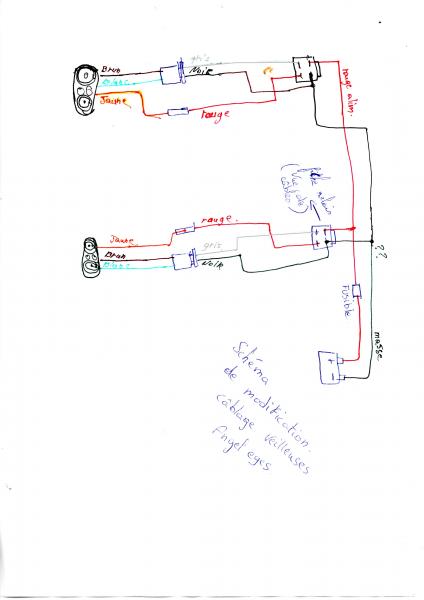 Brun
gris
Noir
Blanc
Jaune
rouge
rouge alim.
(Vue côté
câbles)
rouge.
Jaune
Brun
gris
Noir
Blanc
??
Fusible
masse
+
-
Schéma
de modification.
câblage veilleuses
Angel eyes